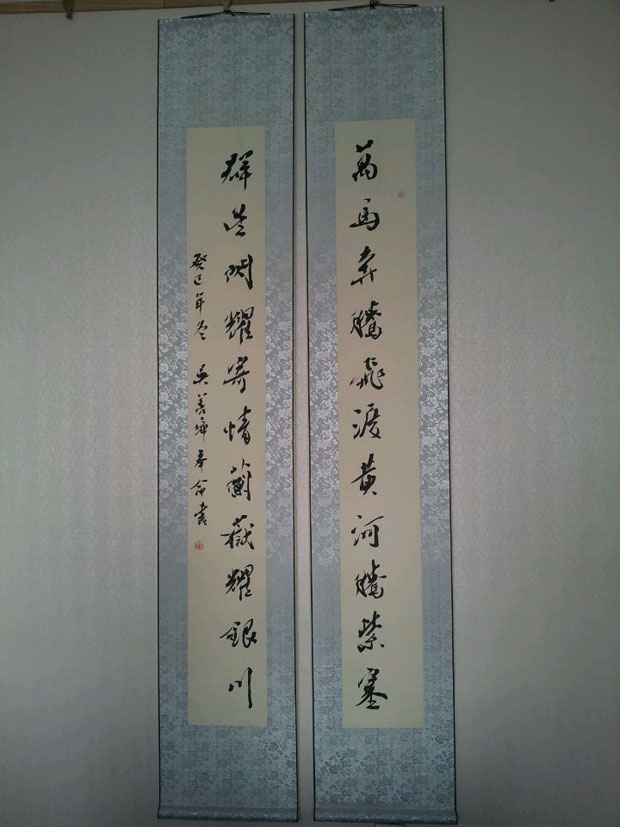 萬馬奔騰飛渡黃河騰紫塞
群英閃耀寄情蘭嶽耀銀川
癸巳年冬 吳善璋奉命書